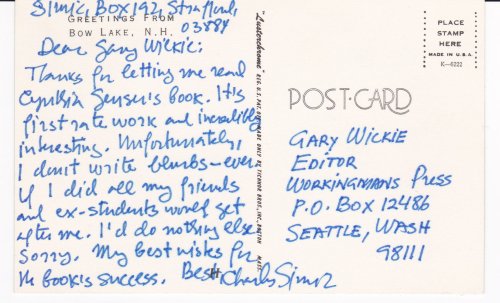 Simic, Box 192, Strafford,
03884
GREETINGS FROM
BOW LAKE, N.H.
Dear Gary Wickie:
Thanks for letting me read
Cynthia Genser's book. It's
first rate work and incredibly
interesting. Unfortunately,
I don't write blurbs – ever.
If I did all my friends
and ex-students would get
after me. I'd do nothing else.
Sorry. My best wishes for
the book's success. Best
Charles Simic
"Lusterchrome" REG. U.S. PAT. OFF. MADE ONLY BY TICHNOR BROS., INC., BOSTON, MASS.
PLACE
STAMP
HERE
MADE IN U.S.A.
K-6222
POST-CARD
GARY WICKIE
EDITOR
WORKINGMANS PRESS
P.O. BOX 12486
SEATTLE, WASH
98111